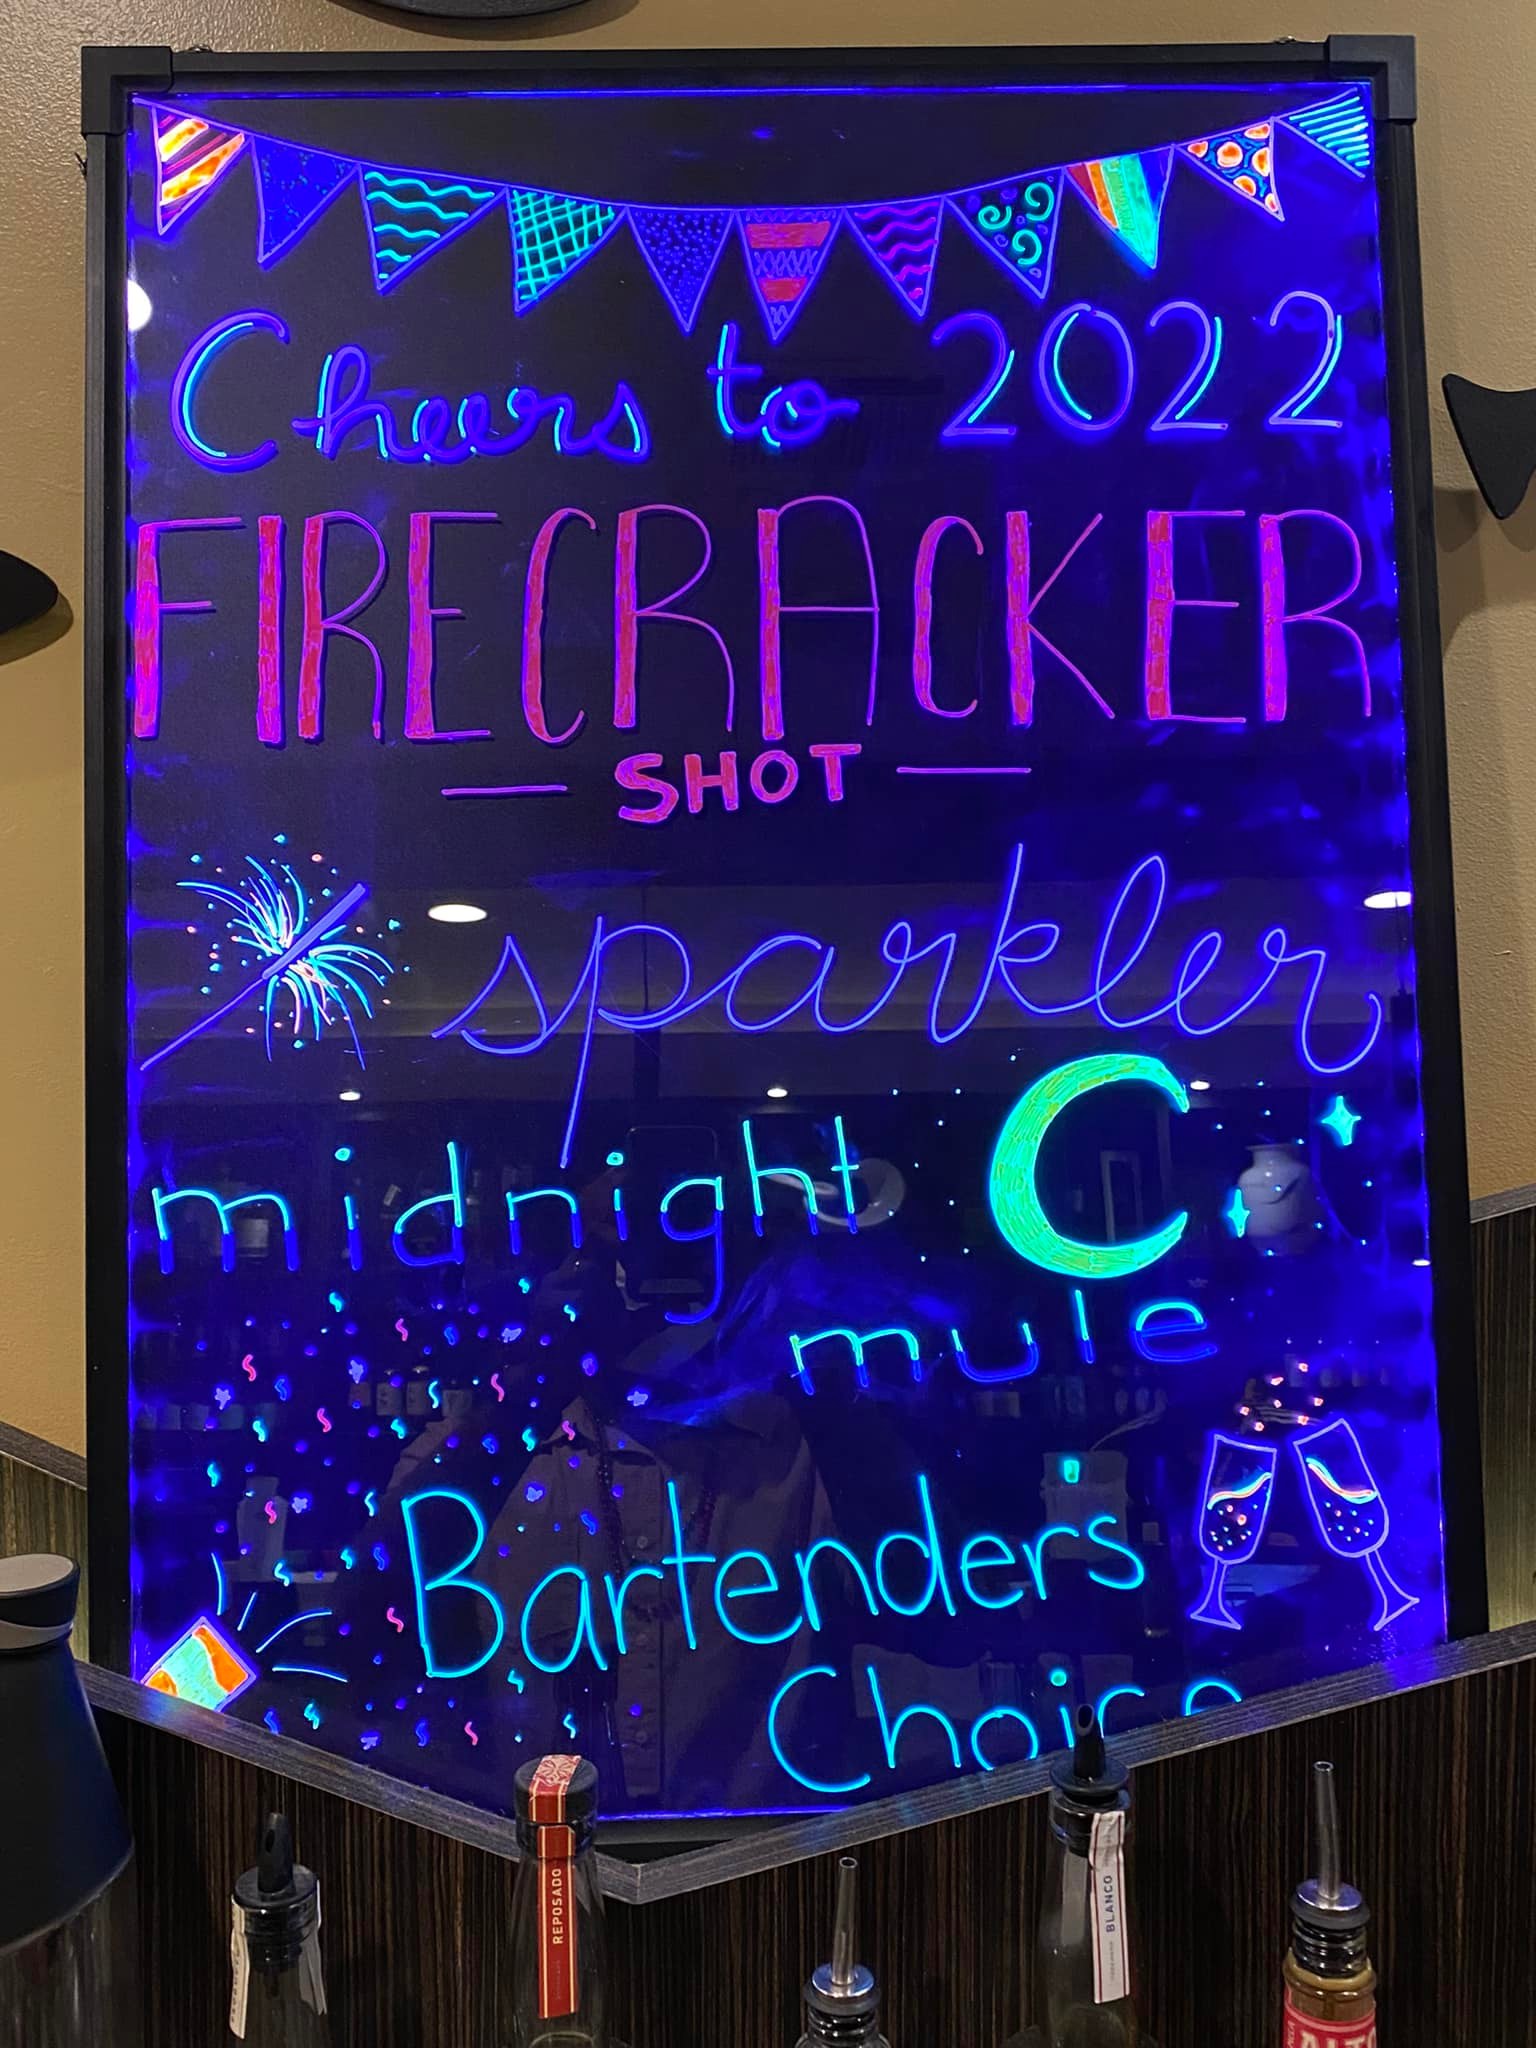 Cheers to 2022
FIRECRACKER
SHOT
sparkler
midnight
mule
Bartender's
Choice
REPOSADO
BLANCO
ALTO